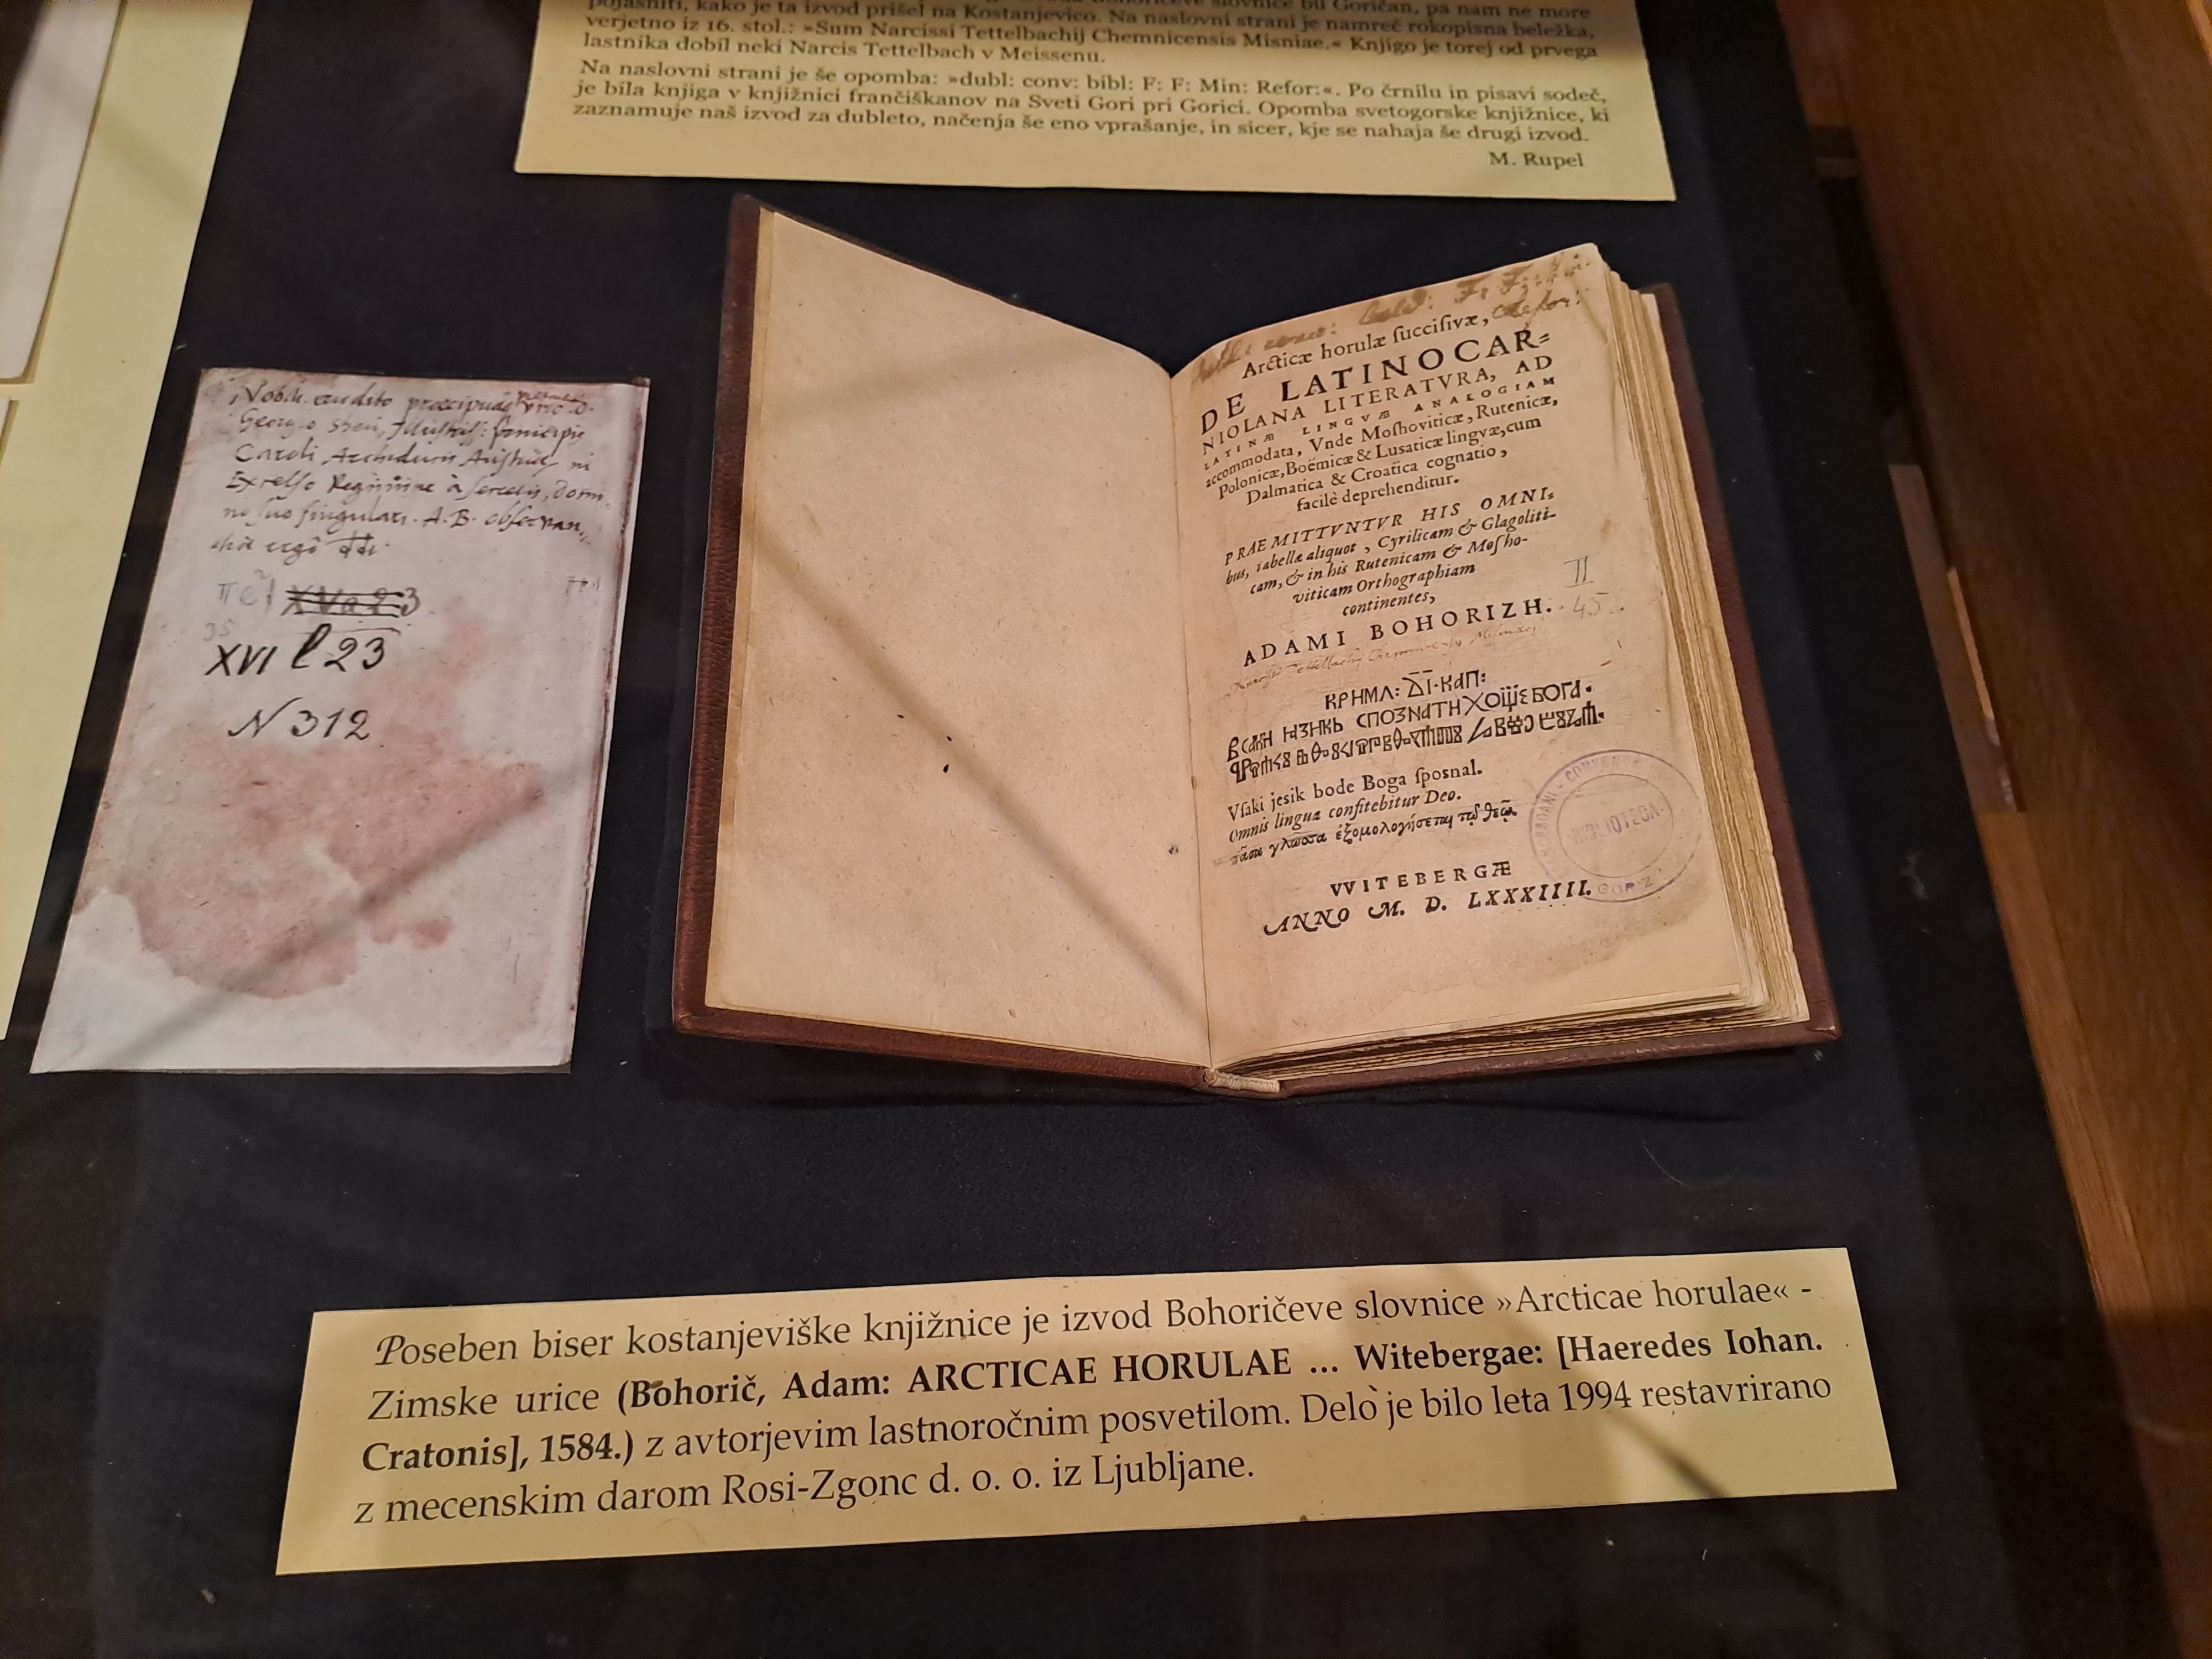 pojasniti, kako je ta izvod prišel na Kostanjevico. Na naslovni strani je namreč rokopisna beležka,
verjetno iz 16. stol.: »Sum Narcissi Tettelbachij Chemnicensis Misniae.« Knjigo je torej od prvega
lastnika dobil neki Narcis Tettelbach v Meissenu.
Na naslovni strani je še opomba: »dubl: conv: bibl: F: F: Min: Refor:«. Po črnilu in pisavi sodeč,
je bila knjiga v knjižnici frančiškanov na Sveti Gori pri Gorici. Opomba svetogorske knjižnice, ki
zaznamuje naš izvod za dubleto, načenja še eno vprašanje, in sicer, kje se nahaja še drugi izvod.
M. Rupel
Caroli Archiducis Austriae
XVa23
XVI l 23
N 312
F: F:
Refor:
Arcticæ horulæ ſucciſivæ,
DE LATINOCAR=
NIOLANA LITERATVRA, AD
LATINÆ LINGVÆ ANALOGIAM
accommodata, Vnde Moſhoviticæ, Rutenicæ,
Polonicæ, Boëmicæ & Luſaticæ lingvæ, cum
Dalmatica & Croatica cognatio,
facilè deprehenditur.
PRAEMITTVNTVR HIS OMNI=
bus, tabellæ aliquot, Cyrilicam & Glagoliti-
cam, & in his Rutenicam & Moſho-
viticam Orthographiam
continentes,
ADAMI BOHORIZH.
II
45
Vſaki jesik bode Boga ſposnal.
Omnis lingua confitebitur Deo.
πᾶσα γλῶσσα ἐξομολογήσεται τῷ θεῷ.
VVITEBERGÆ
ANNO M. D. LXXXIIII.
BIBLIOTECA
Poseben biser kostanjeviške knjižnice je izvod Bohoričeve slovnice »Arcticae horulae« -
Zimske urice (Bohorič, Adam: ARCTICAE HORULAE ... Witebergae: [Haeredes Iohan.
Cratonis], 1584.) z avtorjevim lastnoročnim posvetilom. Delo je bilo leta 1994 restavrirano
z mecenskim darom Rosi-Zgonc d. o. o. iz Ljubljane.